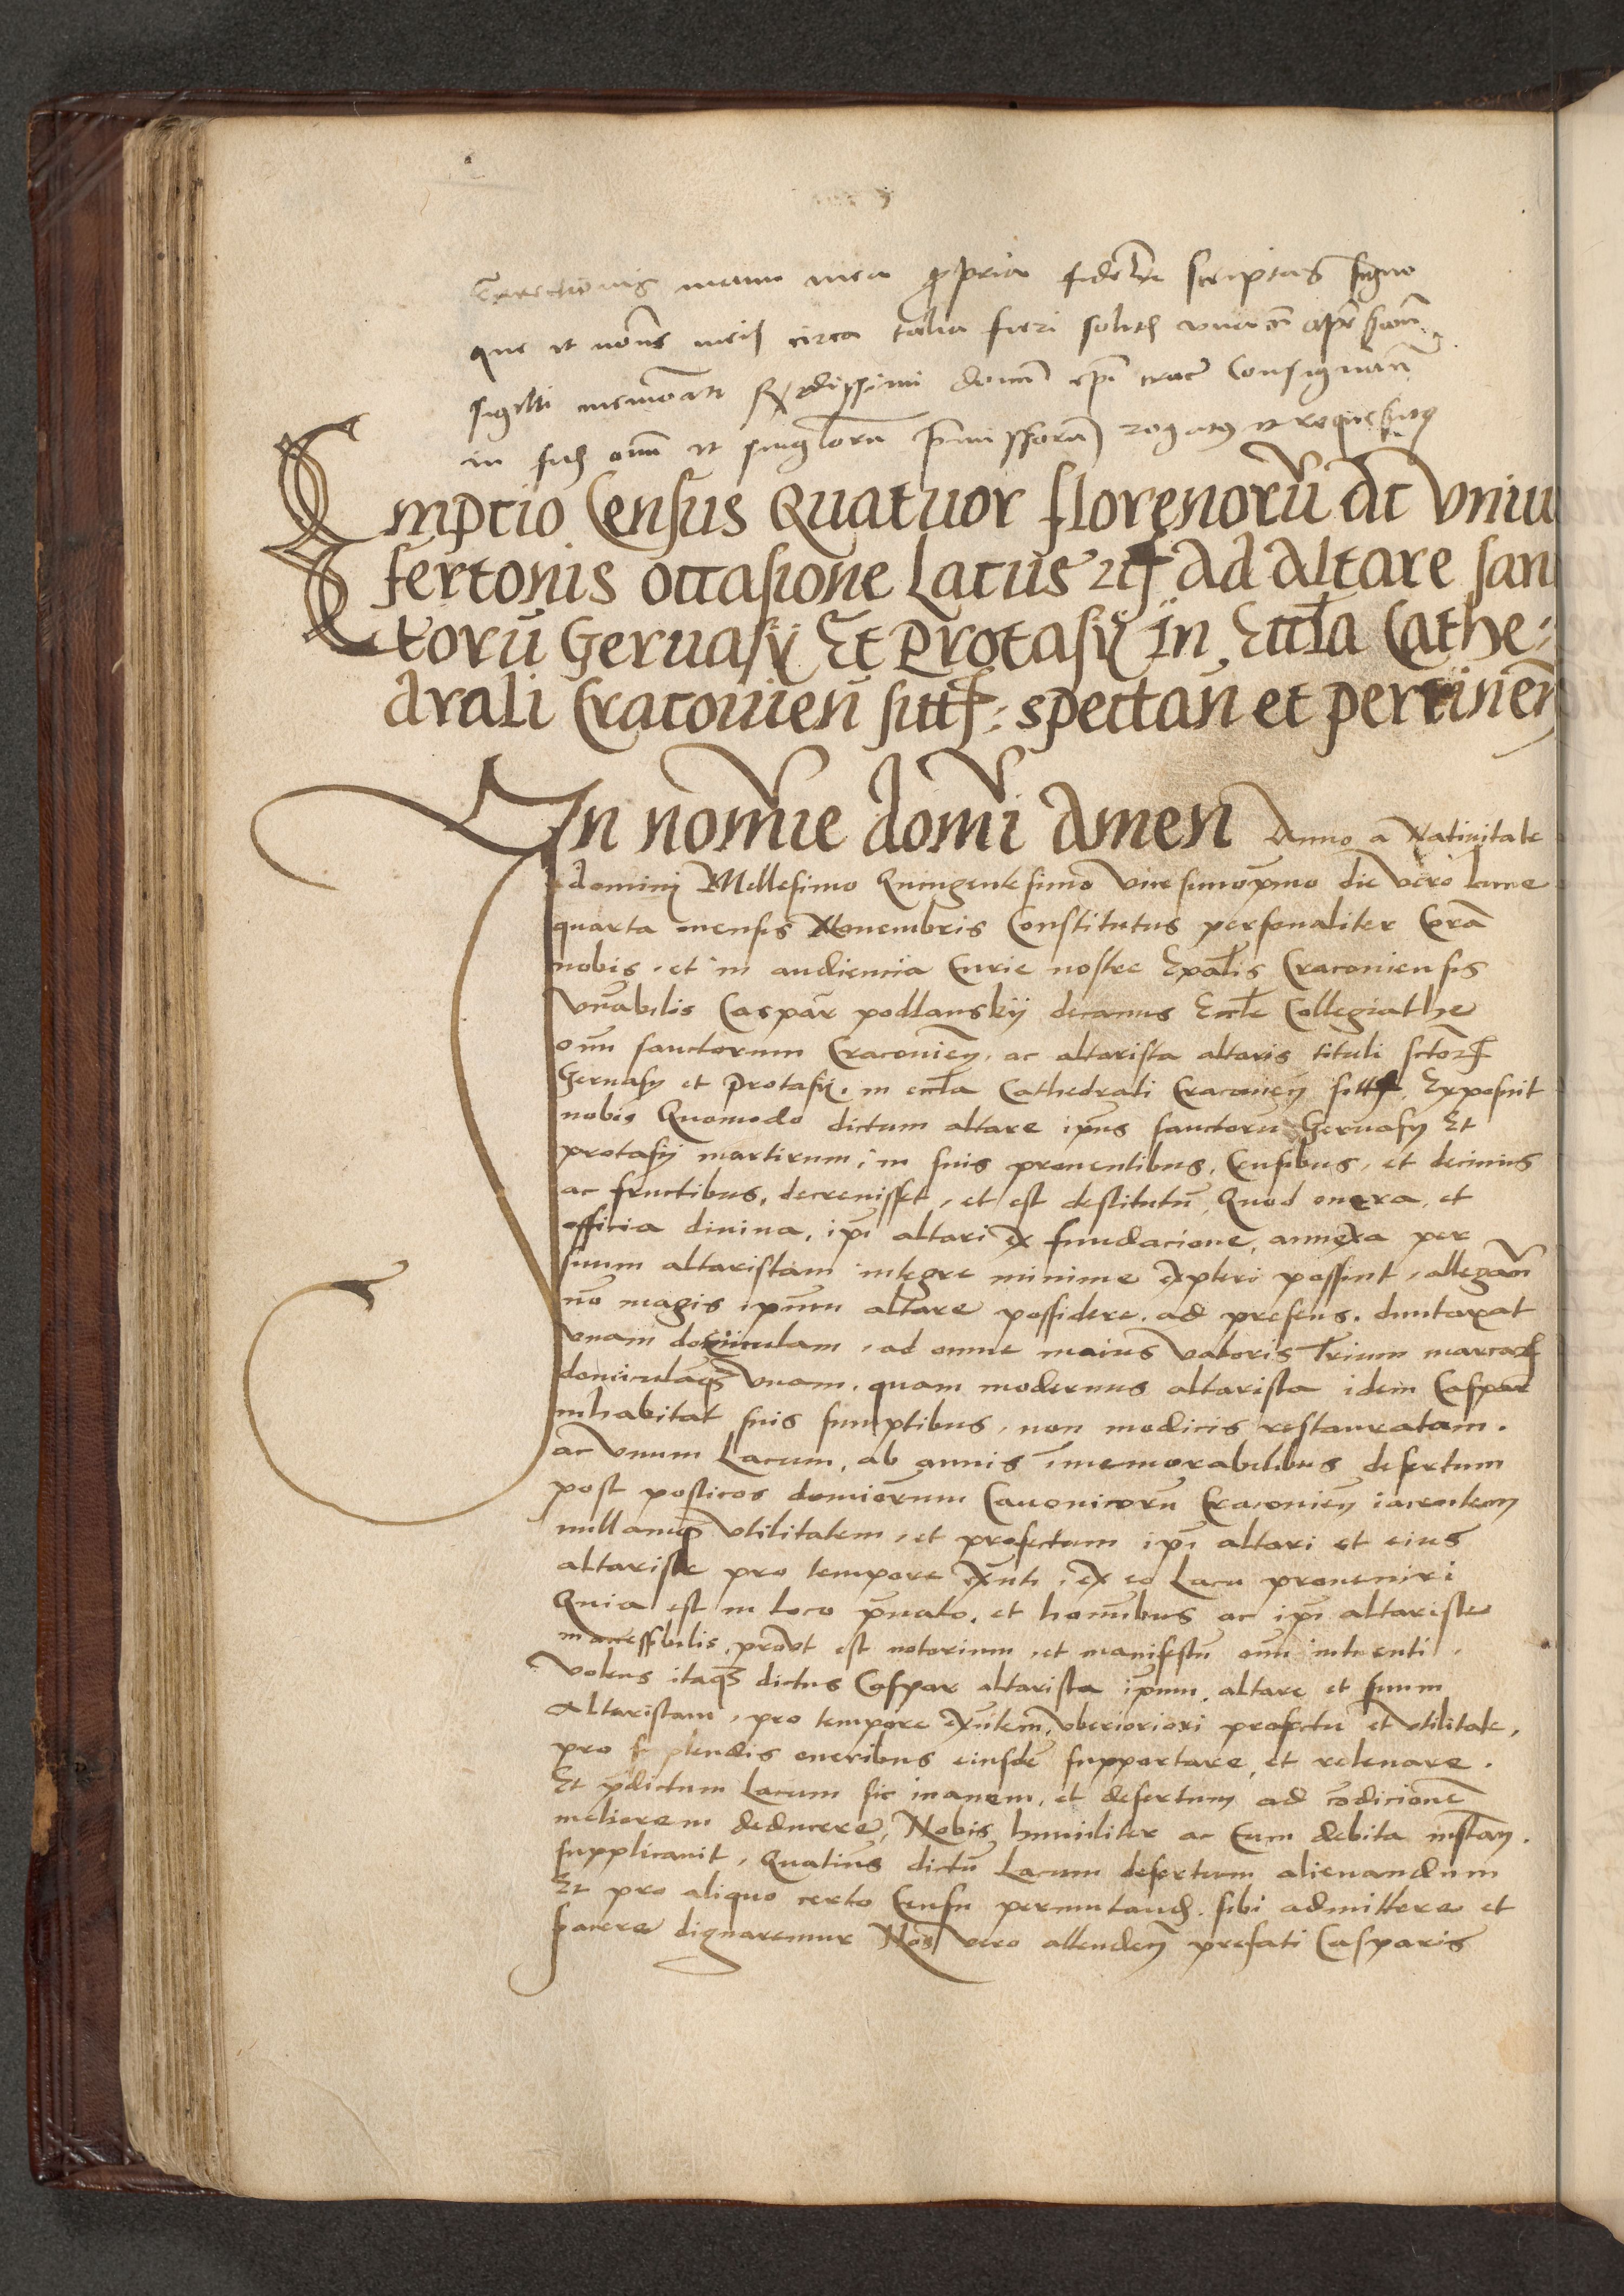 manu mea ꝓpria fideľr scriptas signo
que et noīe meis circa talia fieri solitis vna cū apṕssion̄
sigilli memorati Rn̄dissimi domī epī Crac̄ Consignaui
in fidē om̄ī et singľorū p̄missorū rogatus et requisitus
Emptio Census Quatuor florenorū ac vniu
fertonis occasione Lacus ad Altare san
torū Geruasij Et Protasij In Eccľa Cathe-
drali Cracouien̄ sitt: spectan̄ et pertinen̄
In nomīe domī Amen Anno a Natiuitate
dominj Millesimo Quingentesimo vicesimop̄mo die vero lune
quarta mensis Nouembris Constitutus personaliter Corā
nobis. et in audiencia Curie nostre Ep̄alis Cracouiensis
Vn̄abilis Caspar podlanskij decanus Eccľe Collegiathe
om̄ sanctorum Cracouien̄. ac altarista altaris tituli sctoꝝ
Geruasij et Protasij. in eccľa Cathedrali Cracouien̄ Exposuit
nobis Quomodo dictum altare ip̄us sanctorū Geruasij Et
protasij martirum, in suis prouentibus, Censibus, et decimis
ac fructibus, decreuisset, et est destitutū, Quod onera, et
officia diuina, ip̄i altari ex fundacione, annexa per
suum altaristam integre minime expleri possint, allegan̄
nō magis ip̄um altare possidere. ad presens. duntaxat
vnam domiculam, ad omne maius valoris Trium marcaꝝ
domiculāqꝫ vnam. quam modernus altarista idem Caspar
inhabitat suis sumptibus, non modicis restauratam.
ac vnum Lacum, ab annis īmemorabilibus desertum
post posticos domorum Canonicorū Cracouien̄ iacentem
nullamqꝫ vtilitatem, et profectum ip̄i altari et eius
altariste pro tempore ex̄nti, ex eo Lacu proueniri
Quia est in loco p̄uato, et homībus ac ip̄i altariste
inaccessibilis, prout est notorium, et manifestū om̄ī intuenti.
Volens itaqꝫ dictus Caspar altarista ip̄um, altare et suum
Altaristam, pro tempore ex̄ntem, vberioriori profectu et vtilitate,
pro supplendis oneribus eiusdē supportare, et releuare.
Et p̄dictum Lacum sic inanem, et desertum ad cōdicionē
meliorem deducere, Nobis humiliter ac Cum debita instan̄.
supplicauit, Quatinus dictū Lacum desertum alienandum
Et pro aliquo certo Censu permutand̄. sibi admittere et
fauere dignaremur Nos vero attenden̄ prefati Casparis